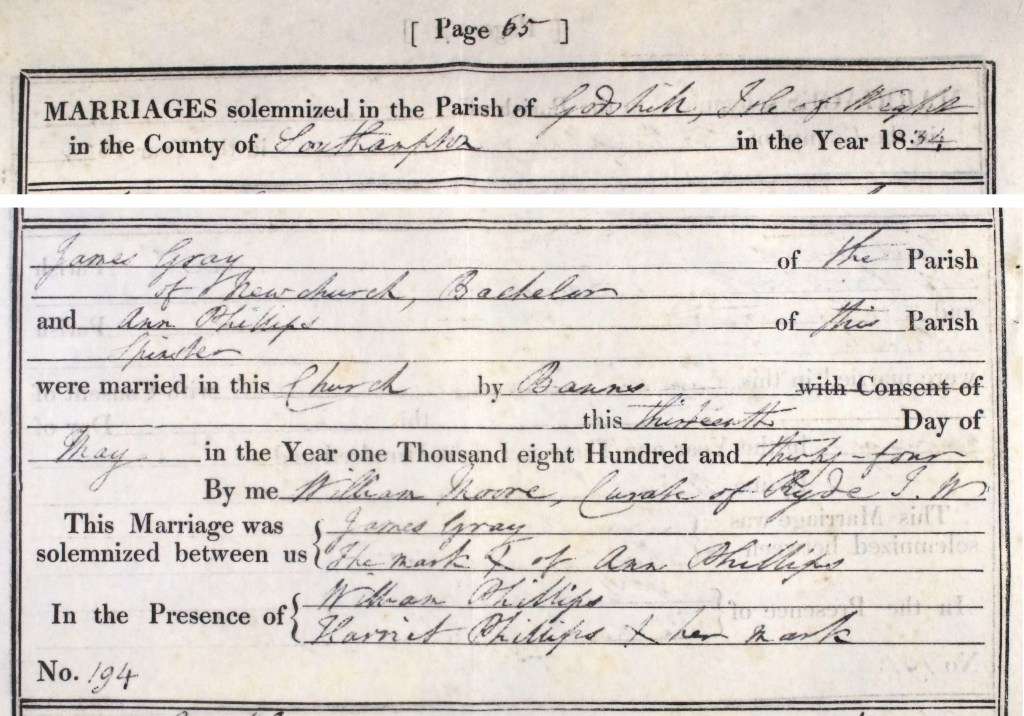 [ Page 65 ]
MARRIAGES solemnized in the Parish of Godshill, Isle of Wight
in the County of Southampton in the Year 1834
James Gray of the Parish
of Newchurch, Bachelor
and Ann Phillips of this Parish
Spinster
were married in this Church by Banns with Consent of
this thirteenth Day of
May in the Year one Thousand eight Hundred and thirty-four
By me William Moore, Curate of Ryde I. W
This Marriage was solemnized between us { James Gray
The mark X of Ann Phillips
In the Presence of { William Phillips
Harriet Phillips X her mark
No. 194